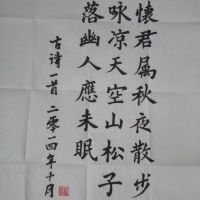 懷君属秋夜散步
咏凉天空山松子
落幽人應未眠
古诗一首 二零一四年十月